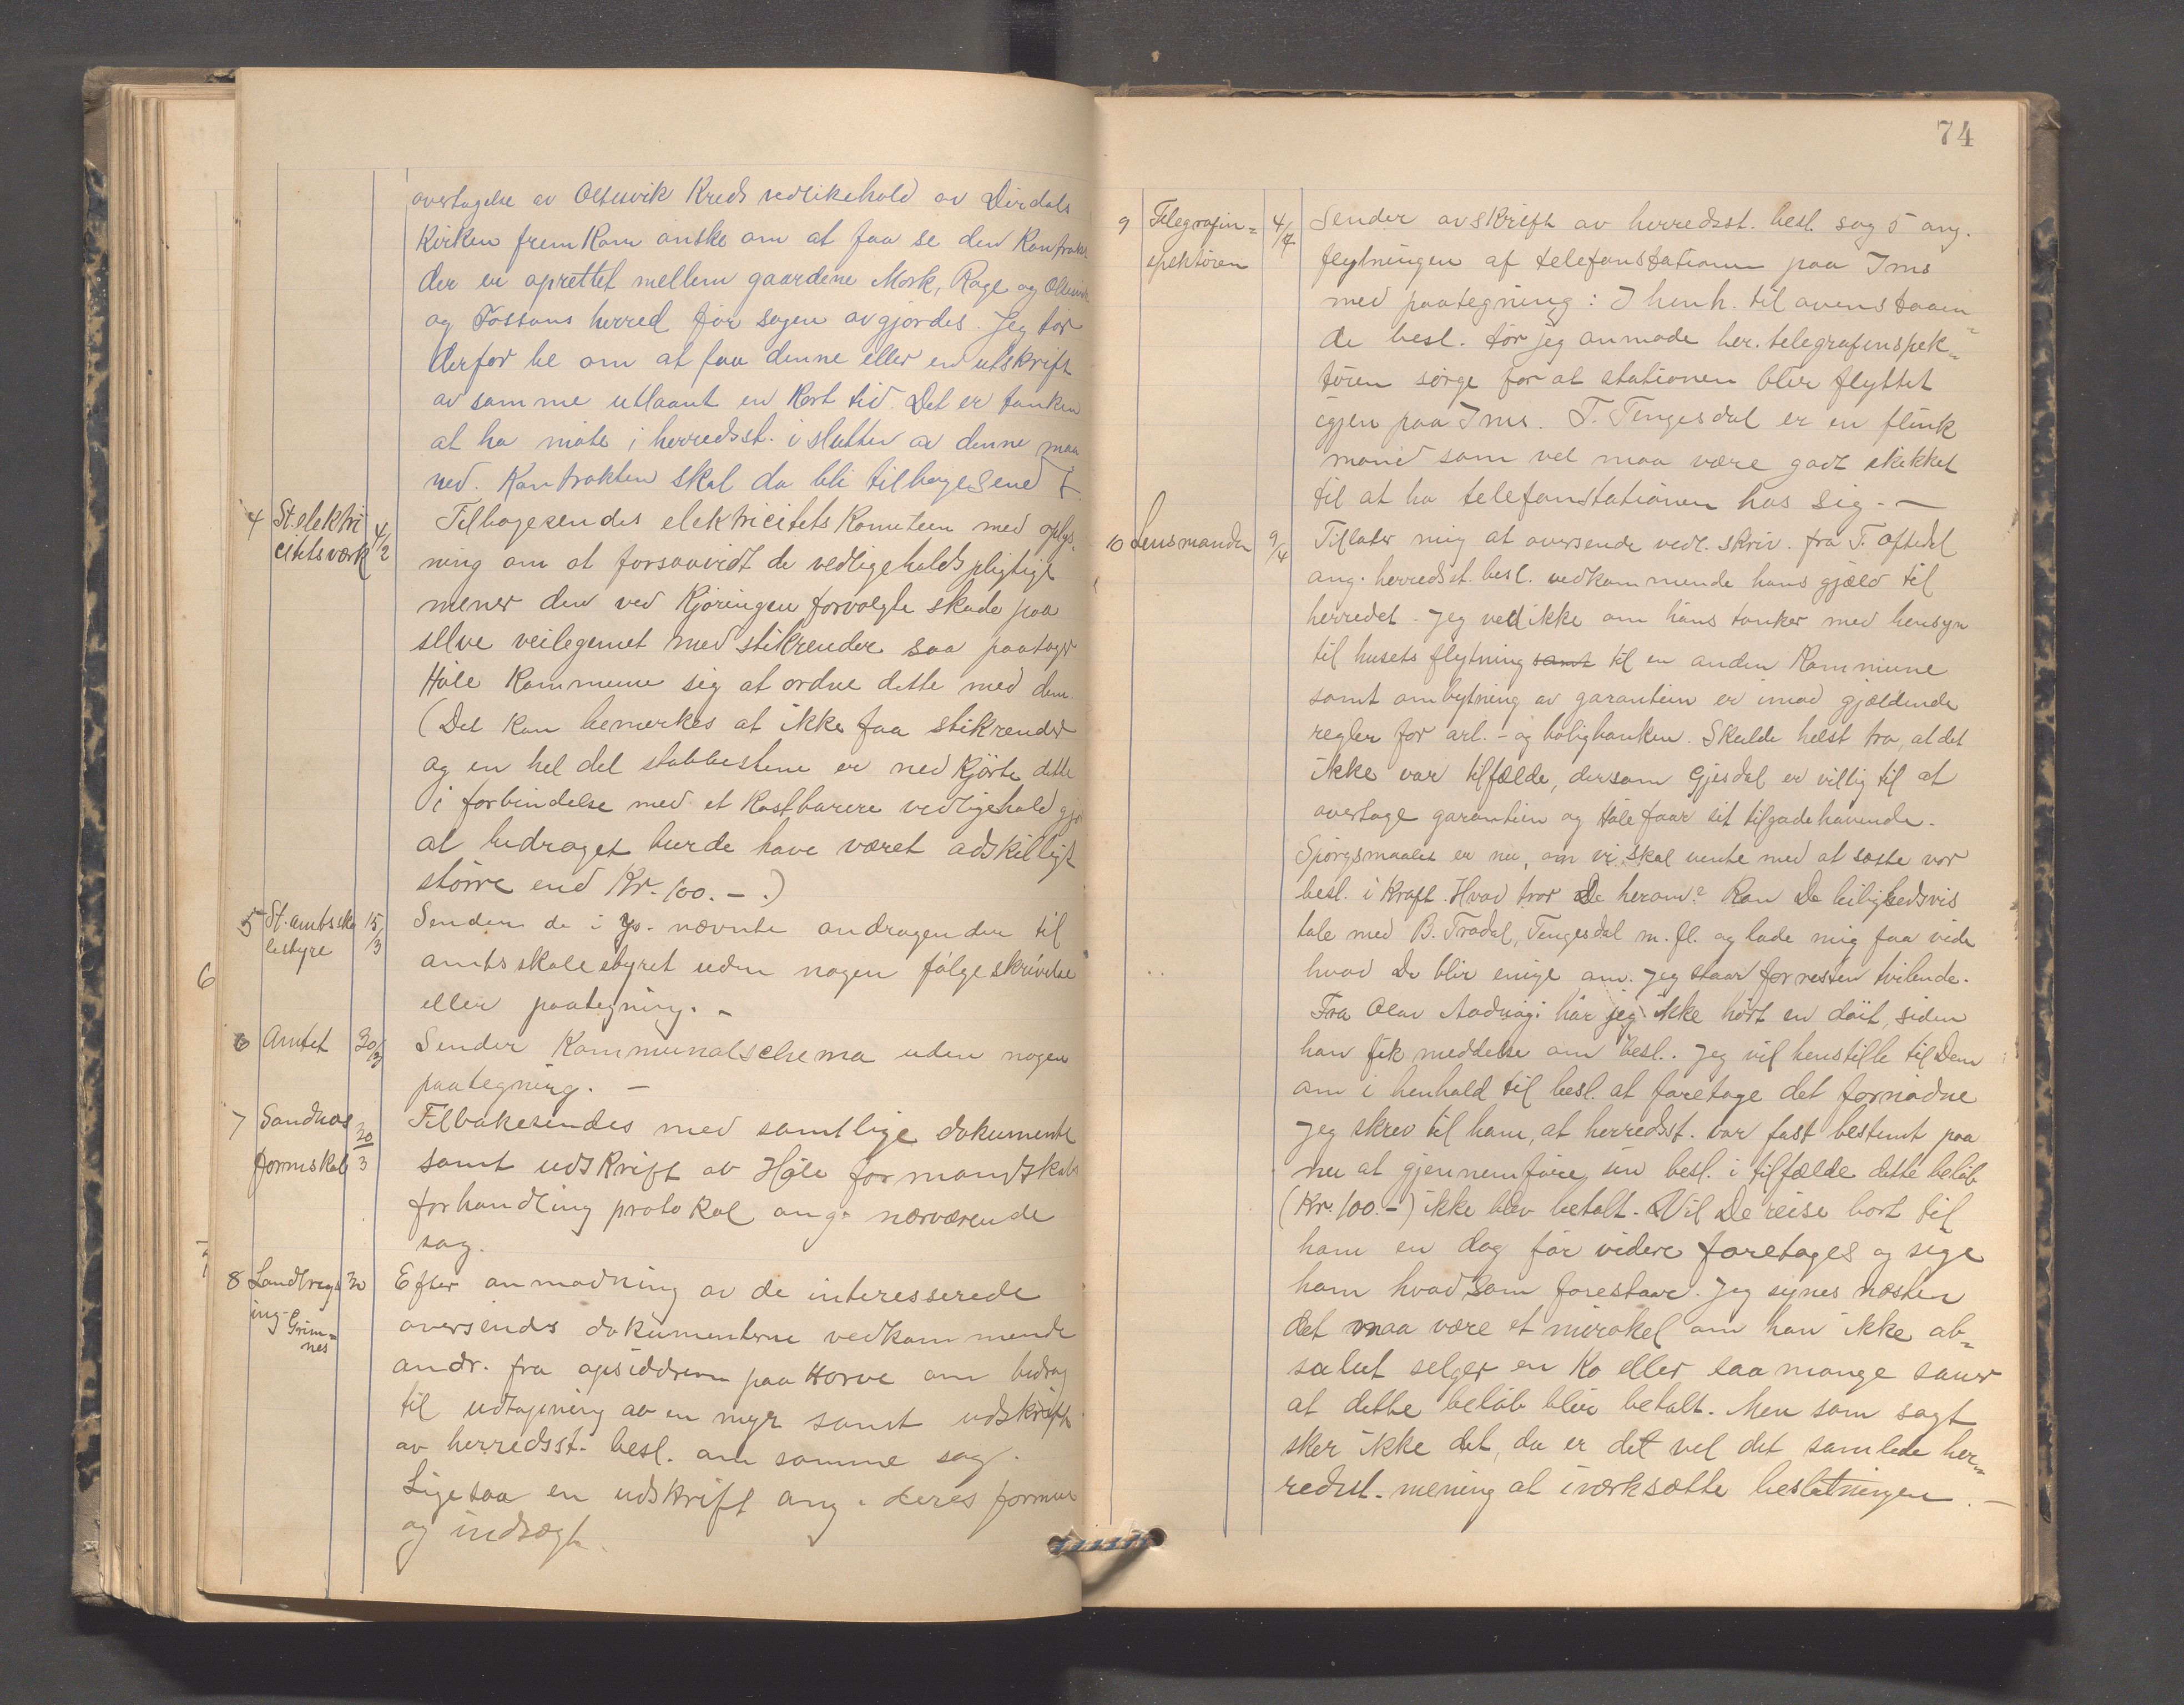 overtagelse av Oltesvik Kreds vedlikehold av Dirdals
Kirken frem kom ønske om at faa se den Kontrakt
der er oprettet mellem gaardene Mork, Rage og Oltesvik
og Fossans herred før sagen avgjordes. Jeg tør
derfor be om at faa denne eller en utskrift
av samme utlaant en kort tid. Det er tanken
at ha møte i herredsst. i slutten av denne maa
ned. Kontrakten skal da bli tilbagesend t.
4 St. elektri citetsværk 4/2 Tilbagesendes elektricitets Komiteen med oplys-
ning om at forsaavidt de vedligeholdspligtige
mener den ved Kjøringen forvolgte skade paa
selve veilegemet med stikrender saa paatager
Høle Kommune sig at ordne dette med dem.
(Det kan bemerkes at ikke faa stikrender
og en hel del stabbestene er ned kjørte dette
i forbindelse med et kostbarere vedligehold gjør
at bidraget burde have været adskilligt
større end Kr. 100.-.)
5 St. amtssko lestyre 15/3 Sender de i nævnte andragender til
amtsskolestyret uden nogen følgeskrivelse
eller paategning. -
6 Amtet 30/3 Sender Kommunalschema uden nogen
paategning. -
7 Sandnes formskab 30/3 Tilbakesendes med samtlige dokumente
samt udskrift av Høle formandskabs
forhandling protokol ang. nærværende
sag.
8 Landbrugs ing. Grim= nes 30 Efter anmodning av de interesserede
oversendes dokumenterne vedkommende
andr. fra opsidderne paa Horve om bidrag
til udtapning av en myr samt udskrift
av herredsst. besl. om samme sag.
Ligesaa en udskrift ang. deres formue
og indtægt.
74
9 Telegrafin= spektøren 4/4 Sender avskrift av herredsst. besl. sag 5 ang.
flytningen af telefonstationen paa Ims
med paategning: I henh. til ovenstaaen=
de besl. tør jeg anmode hr. telegrafinspek=
tøren sørge for at stationen blir flyttet
igjen paa Ims. T. Tengesdal er en flink
mand som vel maa være godt skikket
til at ha telefonstationen hos sig. -
10 Lensmanden 9/4 Tillater mig at oversende vedl. skriv. fra T. Oftedal
ang. herredsst. besl. vedkommende hans gjæld til
herredet. Jeg ved ikke om hans tanker med hensyn
til husets flytning samt til en anden Kommune
samt ombytning av garantien er imod gjældende
regler for arb.- og boligbanken. Skulde helst tro, at det
ikke var tilfælde, dersom Gjesdal er villig til at
overtage garantien og Høle faar sit tilgodehavende.
Spørgsmaalet er nu, om vi skal vente med at sætte vor
besl. i kraft. Hvad tror De herom? Kan De leilighedsvis
tale med B. Trodal, Tengesdal m. fl. og lade mig faa vide
hvad De blir enige om. Jeg staar forresten tvilende.
Fra Olav har jeg ikke hørt en døit, siden
han fik meddelse om besl. Jeg vil henstille til Dem
om i henhold til besl. at foretage det fornødne
Jeg skrev til ham, at herredsst. var fast bestemt paa
nu at gjennemføre sin besl. i tilfælde dette beløb
(Kr. 100.-) ikke blev betalt. Vil De reise bort til
ham en dag før videre foretages og sige
ham hvad som forestaar. Jeg synes næsten
det maa være et mirakel om han ikke ab=
solut selger en ko eller saa mange sauer
at dette beløb blir betalt. Men som sagt
sker ikke det, da er det vel det samlede her=
redsst. mening at iverksætte beslutningen. -